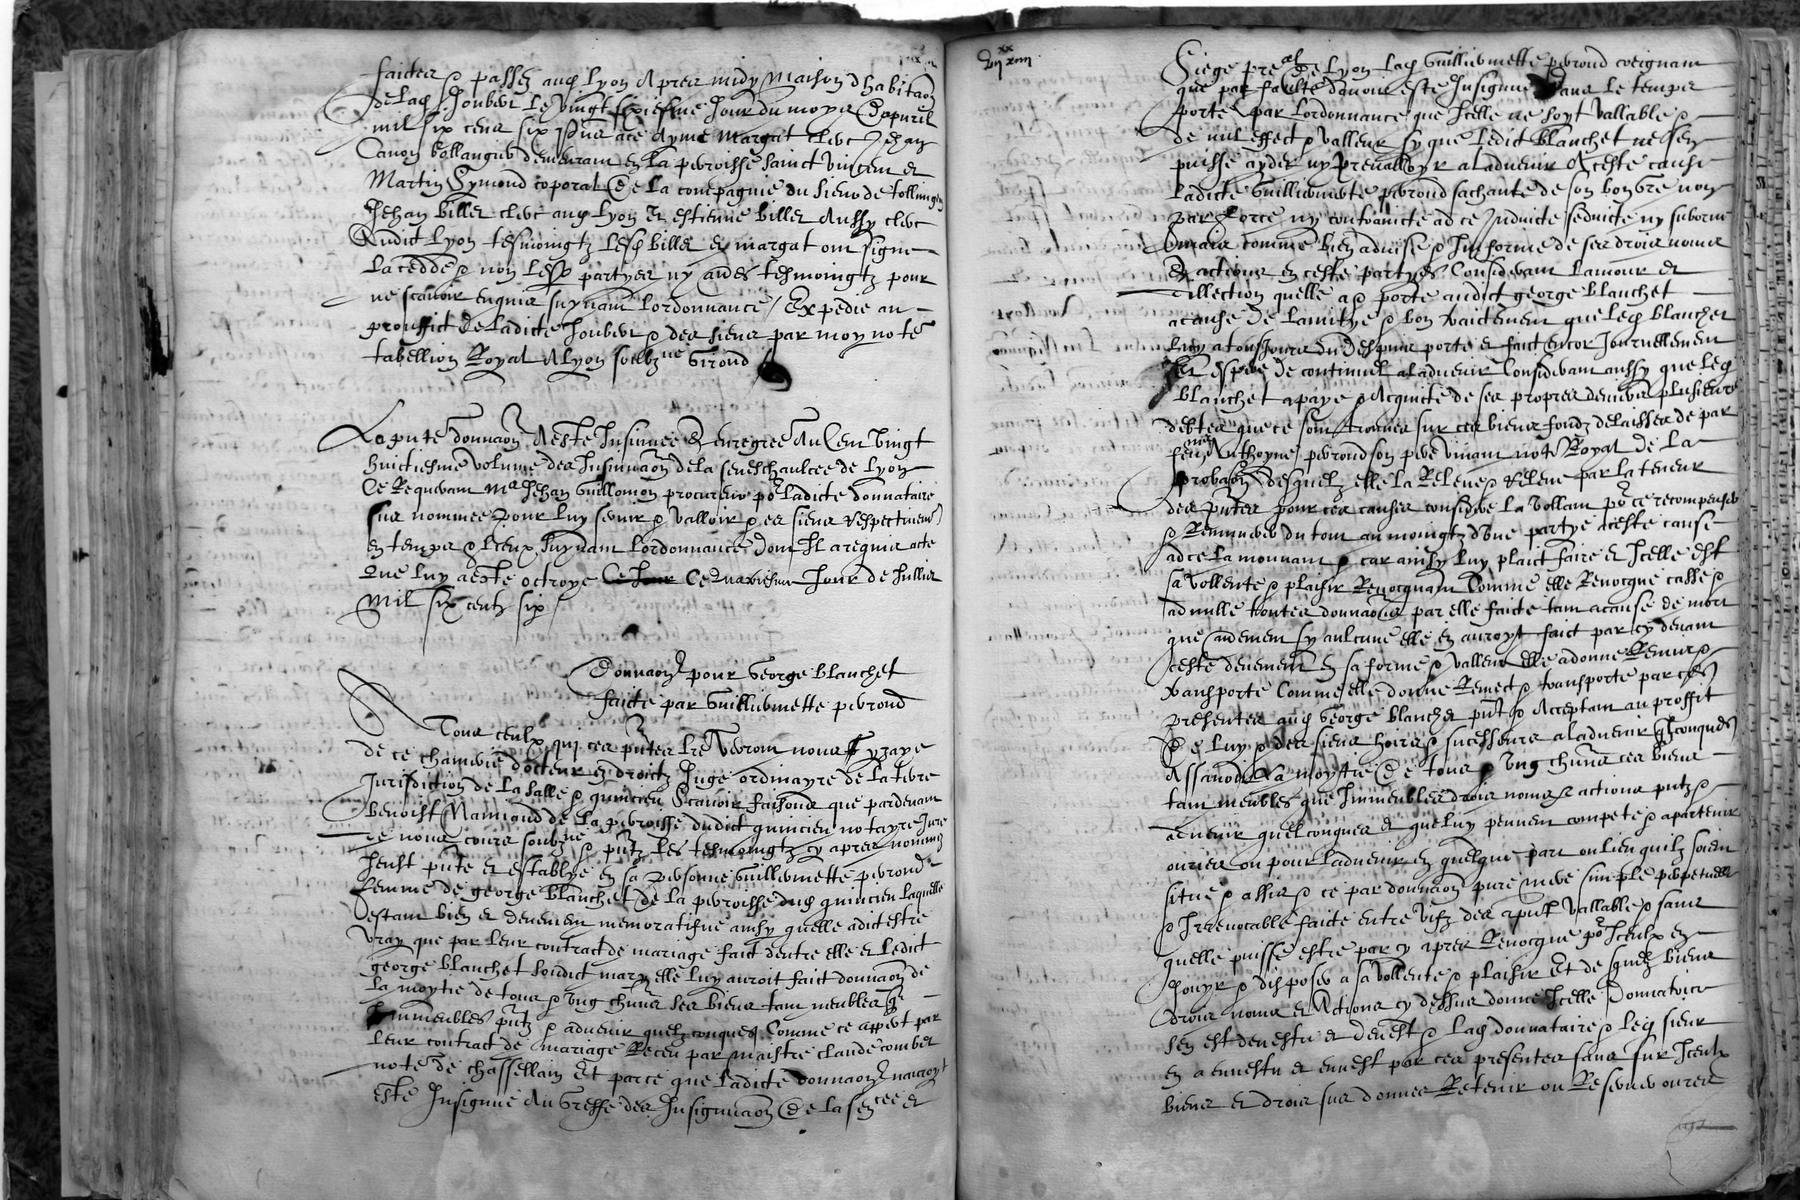 faictes & passé audit Lyon apres midy maison d habitaon
de lad Joubert le vingt sixiesme Jour du moys d apvril
mil six cens six pnts a ce ayme margat clerc Jehan
Canon bollangier demeurant en la perroisse sainct vincent et
Martin Symond coporal de la compagnie du sieur de
Jehan billet clerc aud Lyon et estienne billet aussy clerc
audict Lyon tesmoingtz lesd billet et margat ont signe
la cedde & non lesd partyes ny aues tesmoingtz pour
ne scavoir enquis suyvant lordonnance / Expedie au
prouffict de ladicte Joubert & des siens par moy note
tabellion Royal a Lyon soubzne Girond
La pnte donnaon a este Insinuee & enregree au Cent vingt
huictiesme volume des Insinuaons de la seneschaulcee de Lyon
Ce Requerant Me Jehan Guillomon procureur por ladicte donnataire
sus nommee pour luy servir & valloir & es siens respectivemt
en temps & lieux suyvant lordonnance dont Il a requis acte
que luy a este octroye ce Jour Ce Jour de Juillet
Mil six centz six /
Donnaon pour George blanchet
faicte par Guillermette perrond
A Tous ceulx qui ces pntes lres verront nous yzaye
de ce chamerie docteur en droictz Juge ordinayre de la terre
Jurisdiction de la salle & quincieu Scavoir faisons que pardevant
benoist Mamioud de la perroisse dudict quincieu notayre Jure
de nous cours soubzne & pntz les tesmoingtz cy apres nommez
sest pnte et establye en sa personne Guillermette perrond
femme de george blanchet de la perroisse dud quincieu laquelle
estant bien et deuement memoratifve ainsy quelle a dict estre
vray que par leur contract de mariage faict dentre elle et ledict
george blanchet sondict mary elle luy auroit faict donnaon de
la moytie de tous & ung chuns ses biens tant meubles q
Immeubles pntz & advenir quelzconques Comme ce appert par
leur contract de mariage Receu par maistre claude combet
note de chassellain Et parce que ladicte donnaon nauroyt
este Insignue au Greffe des Insignuaons de la sencee et
Siege preal de Lyon lad Guillermette perrond creignant
que par faulte davoir este Insignue dans le temps
porte par lordonnance que Icelle ne soyt vallable &
de nul effect & valleur sy que ledict blanchet ne sen
puisse ayder ny prevalloyr a ladvenir A ceste cause
ladicte Guillermette perrond sachante de son bon gre non
par force ny contraincte ad ce Induicte seduicte ny suborne
mais comme bien advisee & Imforme de ses drois noms
& actions en ceste partye Considerant lamour et
dillection quelle a & porte audict george blanchet
a cause de lamitye & bon traictement que led blanchet
luy a tousjours du despuis porte et faict encor Journellement
et espere de continuer a ladvenir Considerant aussy que led
blanchet a paye & Acquicte de ses propres deniers plusieurs
debtes que ce sont trouves sur ces biens fondz delaisses de par
feu me Anthoyne perrond son pere vivant note Royal de la
probaon desquelz elle la Releve & releve par la teneur
des pntes pour ces causes considere la vollant por ce recompenser
& Remunerer du tout au moingtz dune partye a ceste cause
ad ce la mouvant & car ainsy luy plaict faire et Icelle est
sa vollente & plaisir Revocquant Comme elle Revocque casse &
adnulle toutes donnaons par elle faicte tant a cause de mort
que aultrement sy aulcune elle en auroyt faict par cy devant
ceste demeurant en sa forme & valleur elle a donne Remis &
transporte Comme elle donne Remect & transporte par ces
presentes aud George blanchet pnt & Acceptant au proffit
de luy & des siens hoirs & sucesseurs a ladvenir quelconques
Assavoir La moytie de tous & ung chuns ces biens
tant meubles que Immeubles drois noms & actions pntz &
advenir quelconques et que luy peuvent compete & apartenir
ou pour ladvenir en quelque part ou lieu quilz soient
situe & assis & ce par donnaon pure mere simple perpetuelle
& Irrevocable faicte entre vifz des a pnt vallable & sans
quelle puisse estre par cy apres Revocque por Iceulx en
Jouyr & disposer a sa vollente & plaisir Et de squelz biens
drois noms et Actions cy dessus donne Icelle Donnatrice
sen est devestu et devest & lad donnataire & led sieur
en a envestu et envest par ces presentes sans sur Iceulx
biens et drois sus donnes Retenir ou Reserver